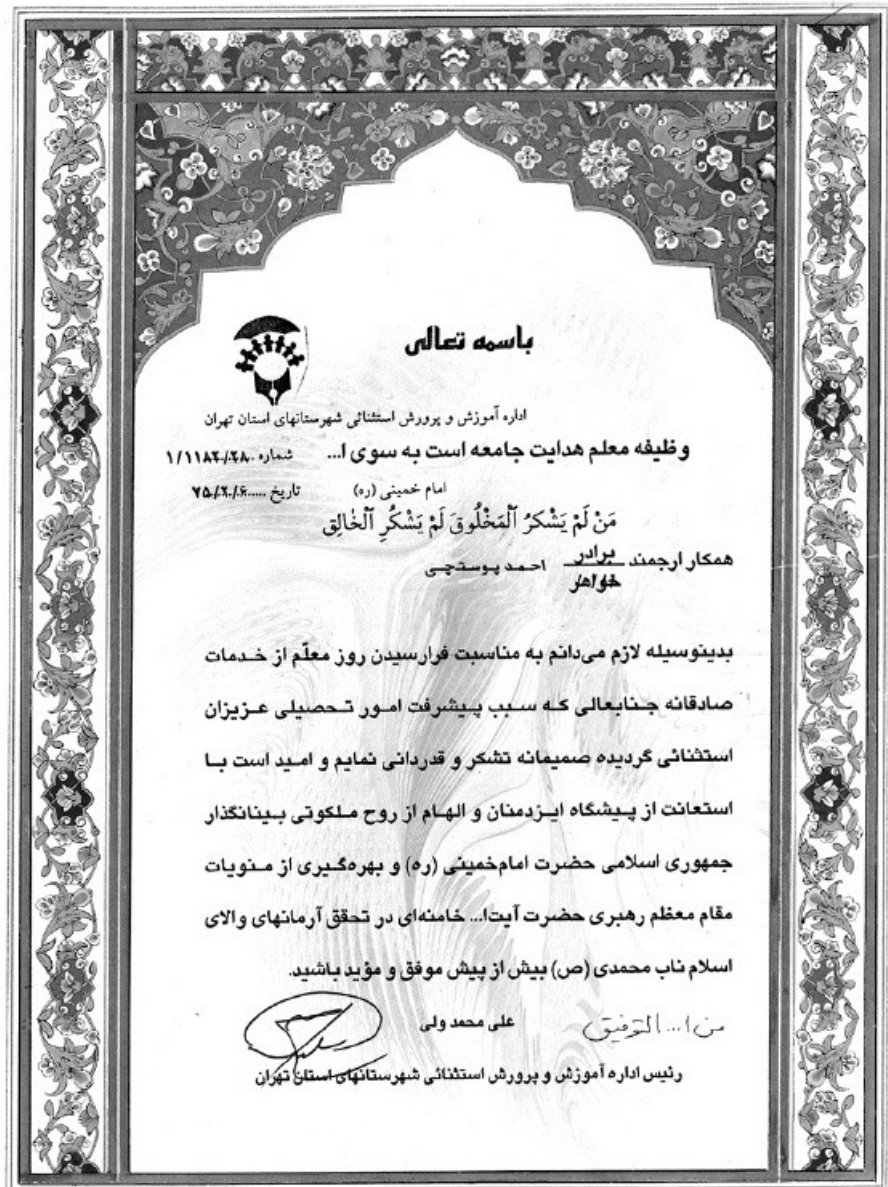 باسمه تعالی
اداره آموزش و پرورش استثنائی شهرستانهای استان تهران
وظیفه معلم هدایت جامعه است به سوی ا...
شماره ۱/۱۱۸۲/۲۸۰۰
امام خمینی (ره)
تاریخ .....۷۵/۲/۶
مَنْ لَمْ یَشْکرُ ٱلْمَخْلُوقَ لَمْ یَشْکُرِ ٱلْخٰالِق
همکار ارجمند برادر احمد پوستچی
خواهر
بدینوسیله لازم می‌دانم به مناسبت فرارسیدن روز معلّم از خدمات
صادقانه جنابعالی که سبب پیشرفت امور تحصیلی عزیزان
استثنائی گردیده صمیمانه تشکر و قدردانی نمایم و امید است با
استعانت از پیشگاه ایزدمنان و الهام از روح ملکوتی بینانگذار
جمهوری اسلامی حضرت امام‌خمینی (ره) و بهره‌گیری از منویات
مقام معظم رهبری حضرت آیت‌ا... خامنه‌ای در تحقق آرمانهای والای
اسلام ناب محمدی (ص) بیش از پیش موفق و مؤید باشید.
من ا... التوفیق
علی محمد ولی
رئیس اداره آموزش و پرورش استثنائی شهرستانهای استان تهران